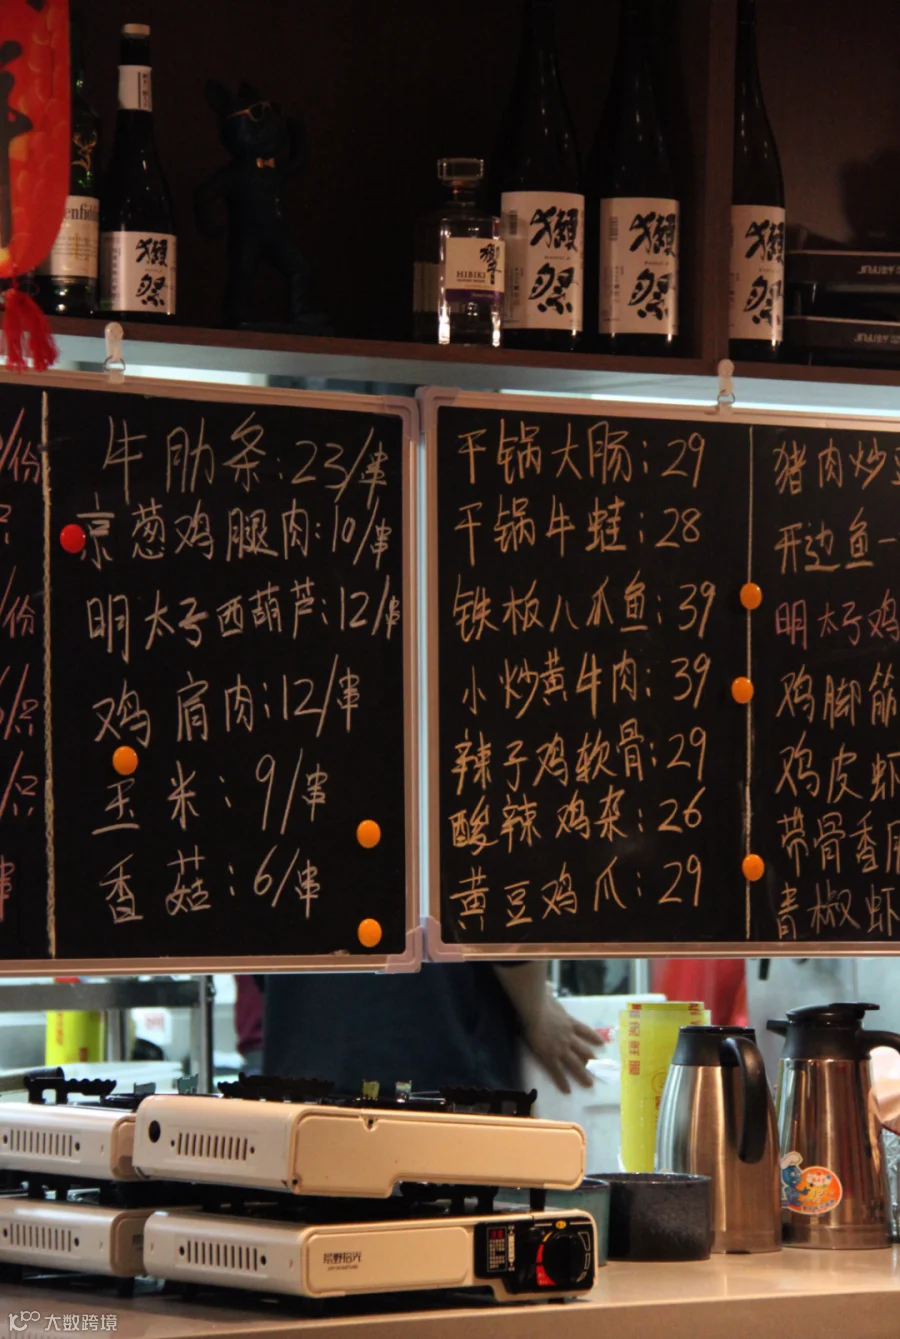 enfiddi
獭祭
響
HIBIKI
獭祭
獭祭
獭祭
/份
/份
/只
/只
串
牛肋条:23/串
京葱鸡腿肉:10/串
明太子西葫芦:12/串
鸡肩肉:12/串
玉米:9/串
香菇:6/串
干锅大肠:29
干锅牛蛙:28
铁板八爪鱼:39
小炒黄牛肉:39
辣子鸡软骨:29
酸辣鸡杂:26
黄豆鸡爪:29
猪肉炒
开边鱼一
明太子鸡
鸡脚筋
鸡皮虾
带骨香
青椒虾
大数跨境